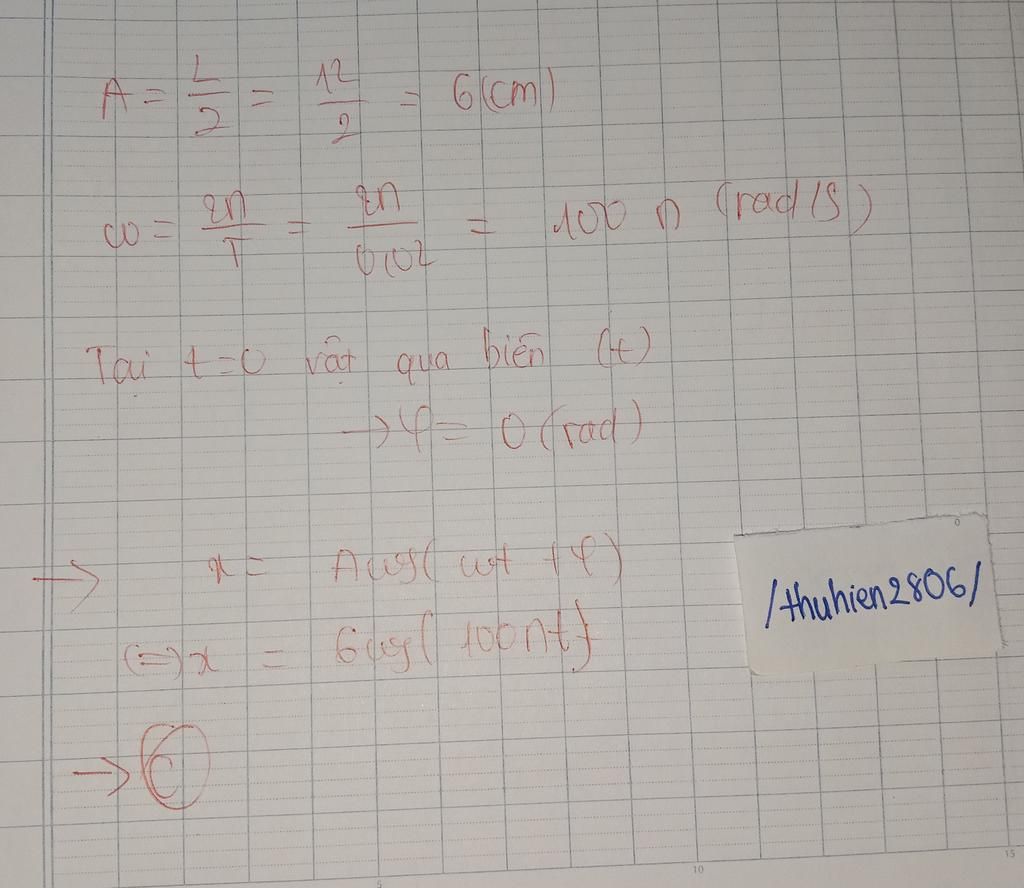 A = L/2 = 12/2 = 6 (cm)
ω = 2π/T = 2π/0,02 = 100 π (rad/s)
Tại t=0 vật qua biên (+)
→ φ = 0 (rad)
→ x = Acos( ωt + φ)
(=) x = 6cos( 100πt)
→ C
/thuhien2806/
0
5
10
15